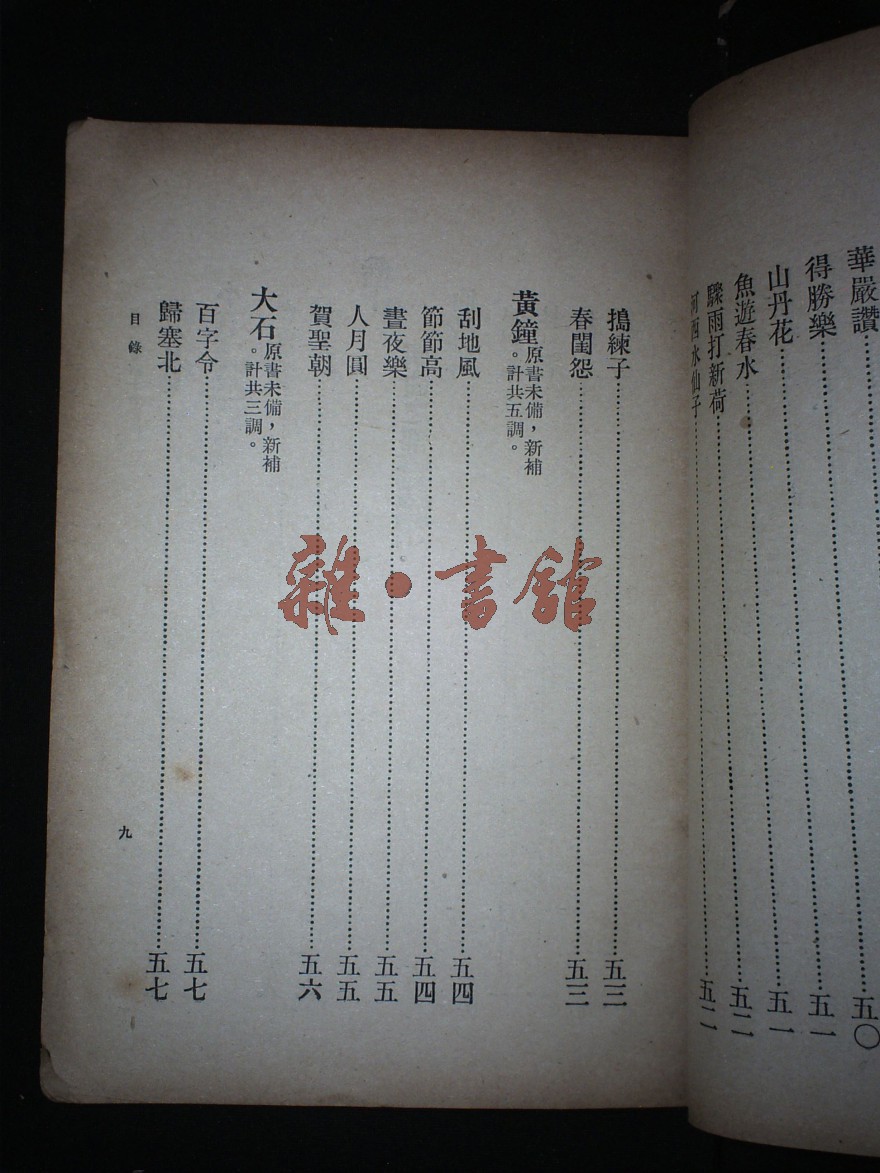 華嚴讚……五〇
得勝樂……五一
山丹花……五一
魚遊春水……五二
驟雨打新荷……五二
河西水仙子
搗練子……五三
春閨怨……五三
黃鐘 原書未備，新補。計共五調。
刮地風……五四
節節高……五四
晝夜樂……五五
人月圓……五五
賀聖朝……五六
大石 原書未備，新補。計共三調。
百字令……五七
歸塞北……五七
目錄
九
雜·書館